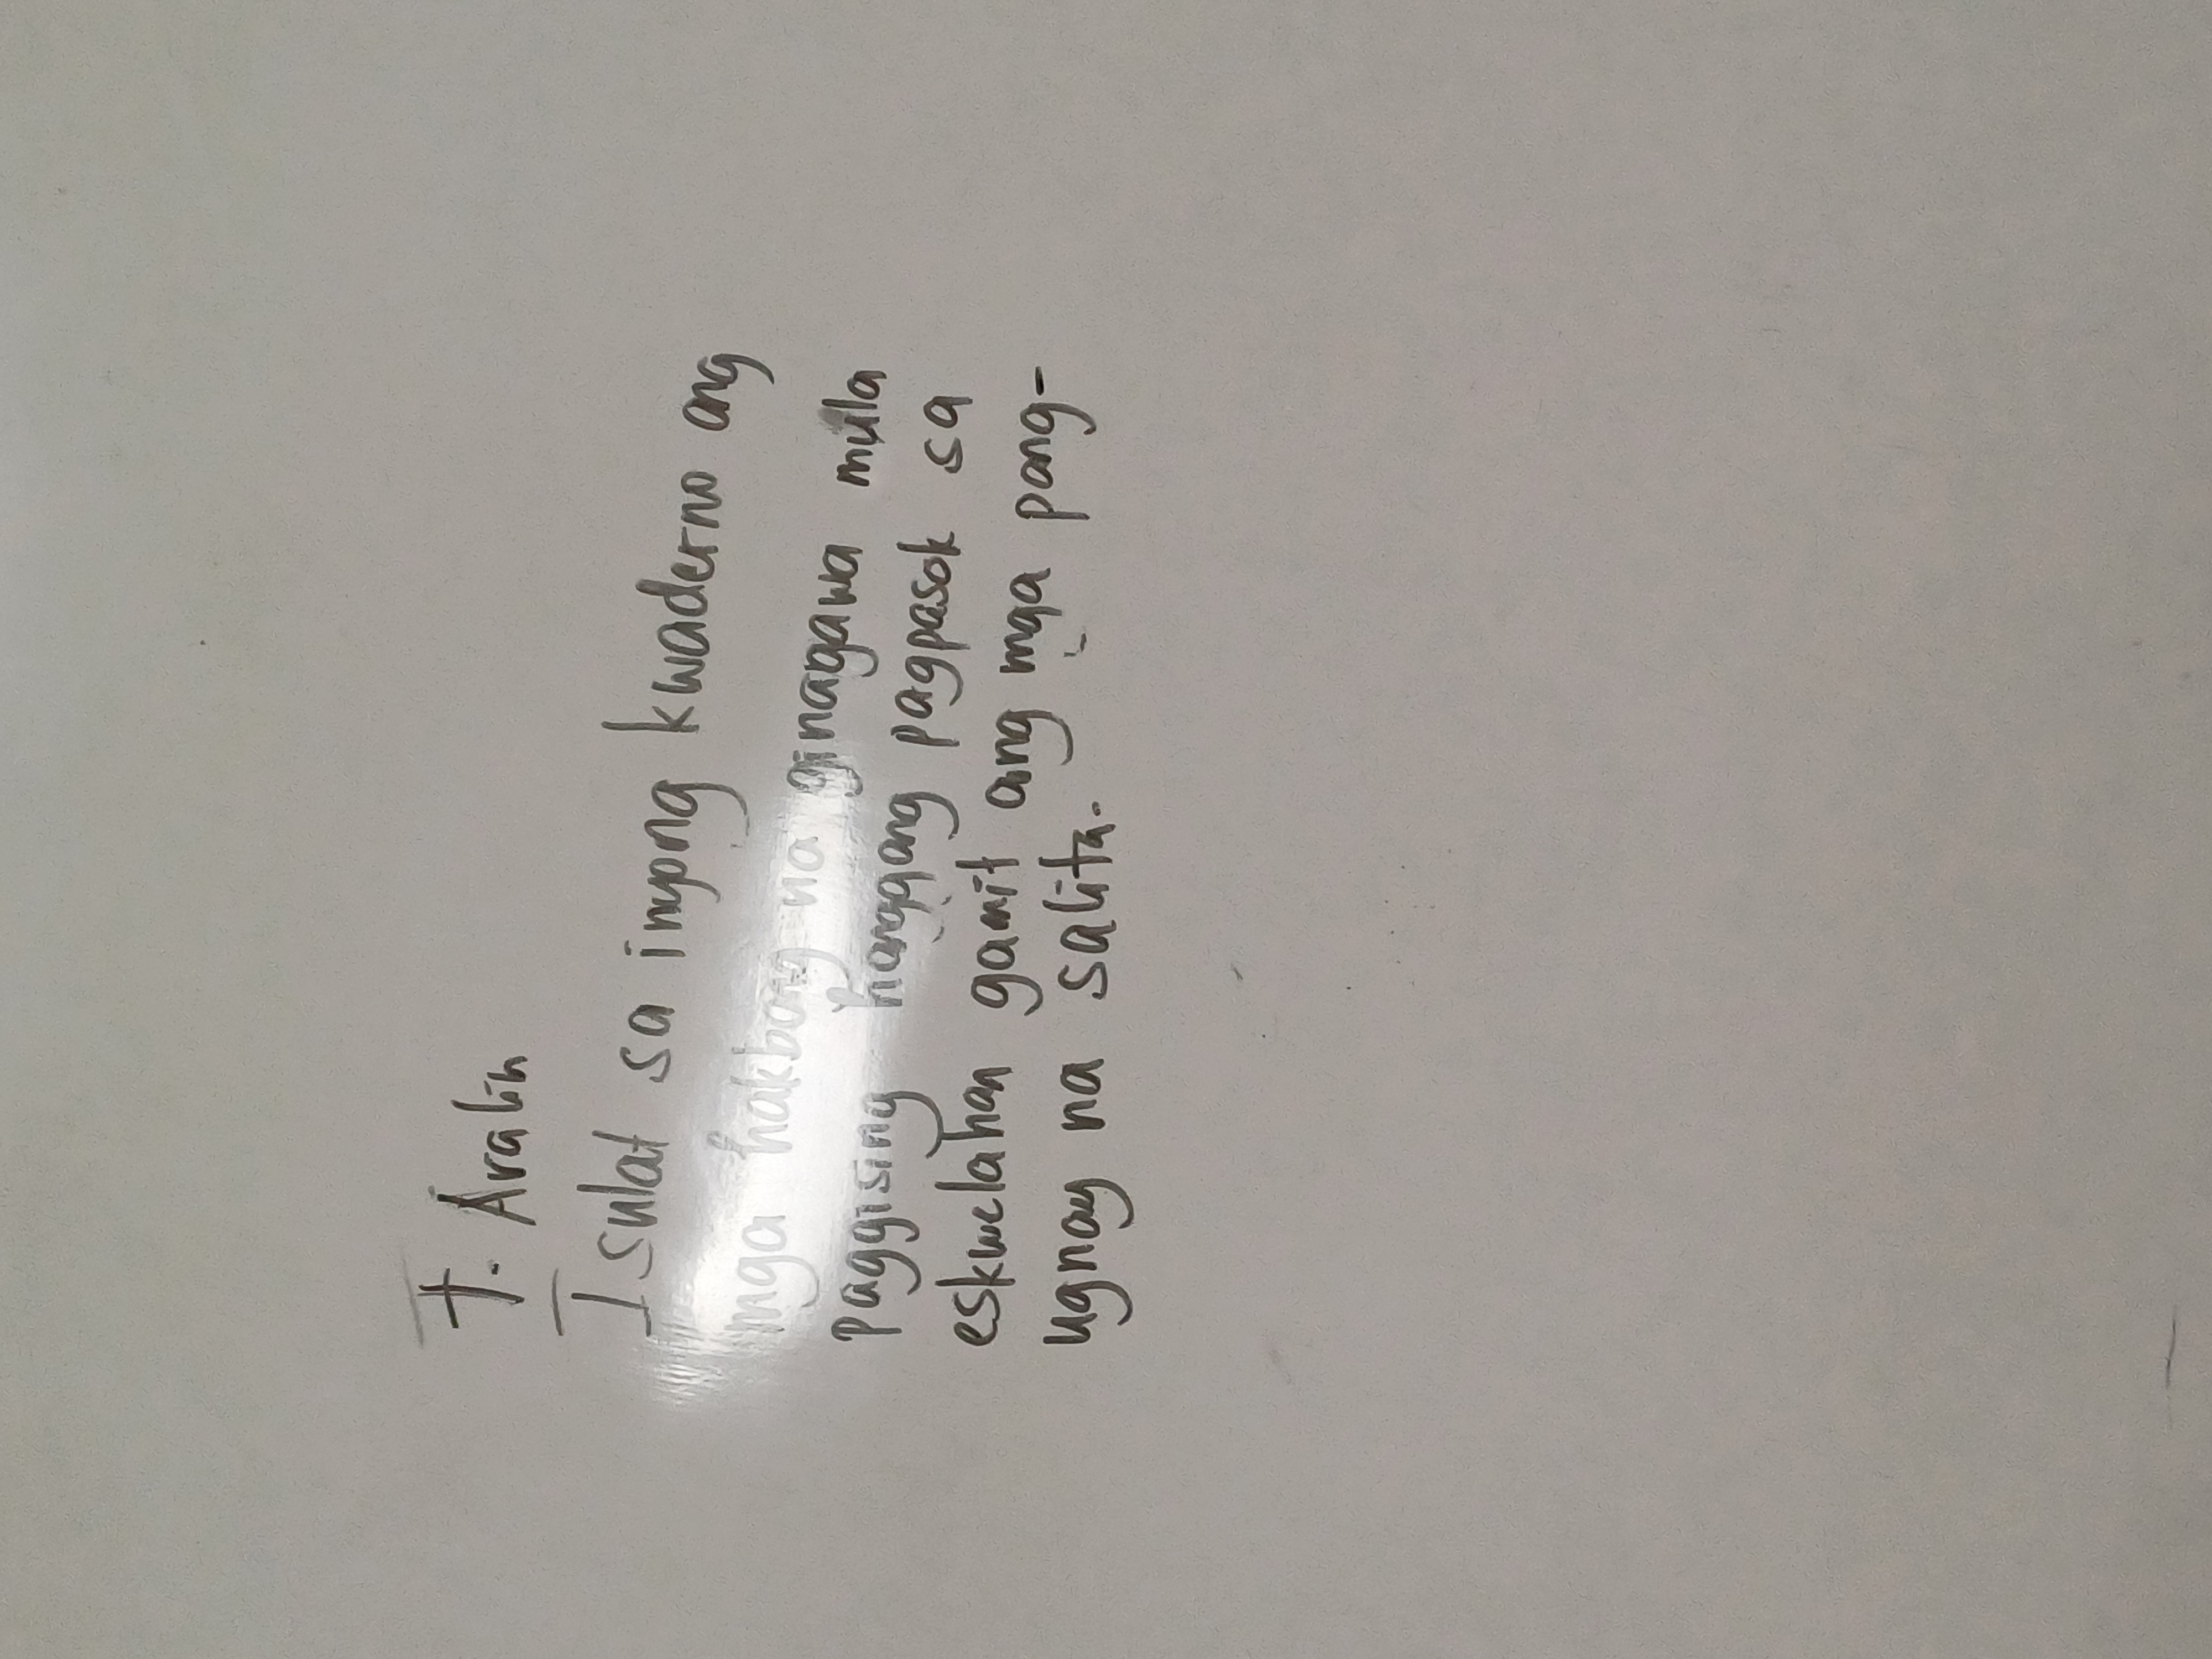 T. Aralin
Isulat sa inyong kwaderno ang
mga hakbang na ginagawa mula
paggising hanggang pagpasok sa
eskwelahan gamit ang mga pang-
ugnay na salita.